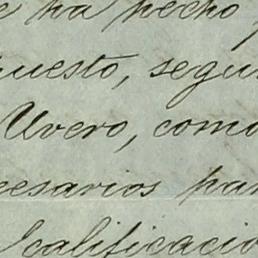 e ha hecho
uesto, segu
Uvero, como
cesarios par
calificacio